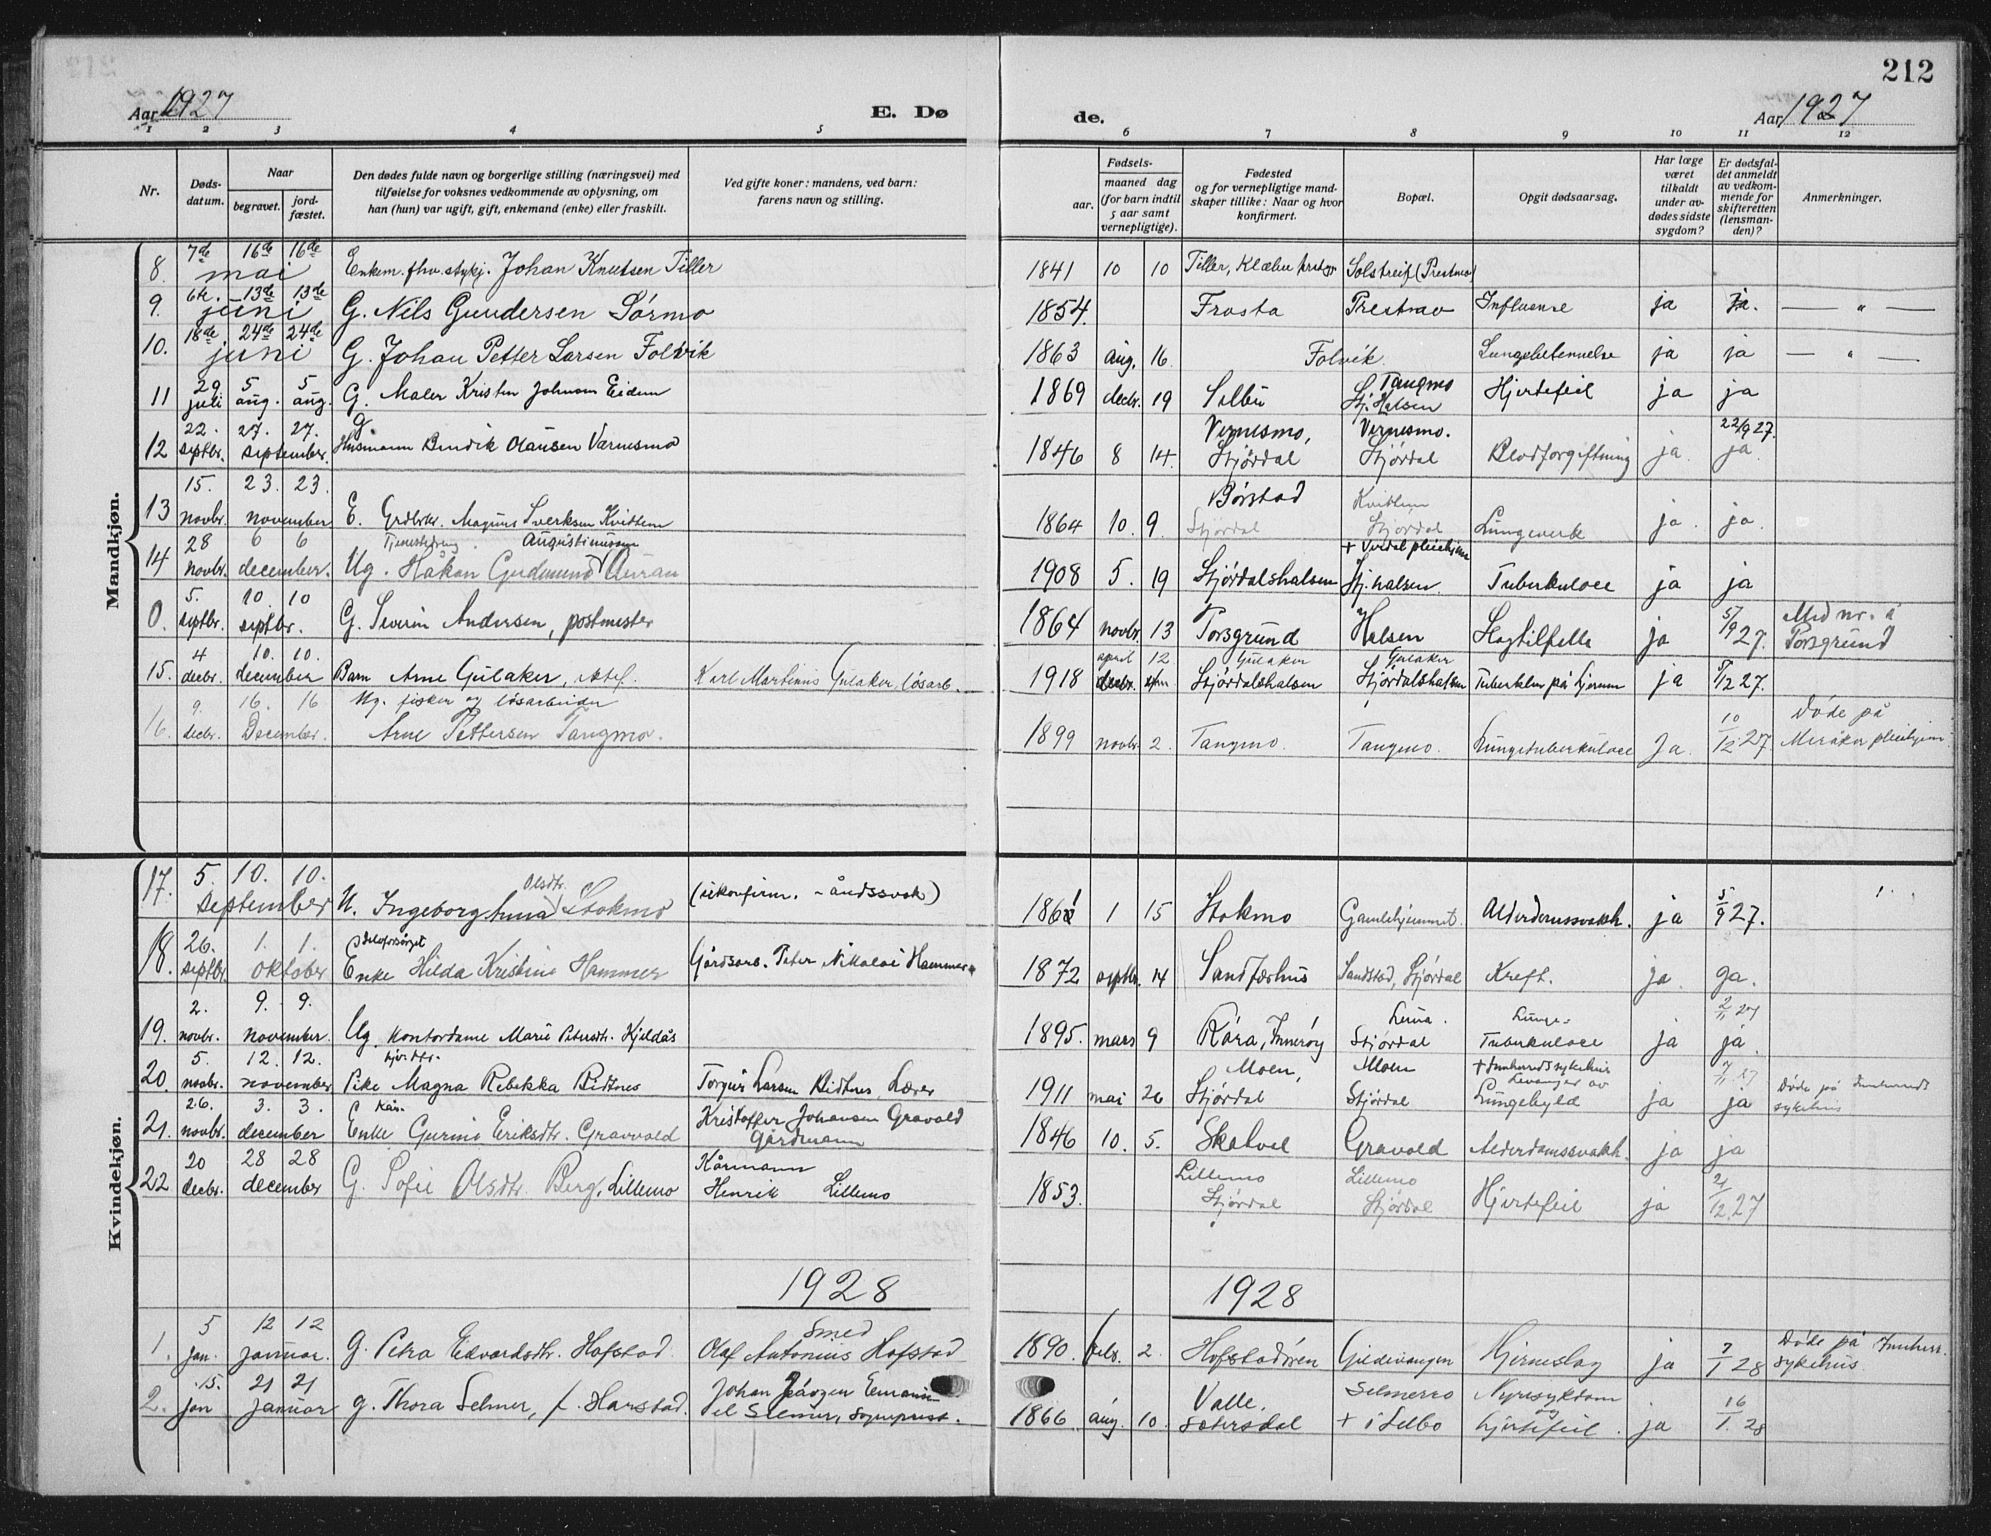 212
Aar 1927
E. Dø
de.
Aar 1927
1 2 3 4 5 6 7 8 9 10 11 12
Nr.
Døds-
datum.
Naar
begravet.
jord-
fæstet.
Den dødes fulde navn og borgerlige stilling (næringsvei) med
tilføielse for voksnes vedkommende av oplysning, om
han (hun) var ugift, gift, enkemand (enke) eller fraskilt.
Ved gifte koner: mandens, ved barn:
farens navn og stilling.
Fødsels-
aar.
maaned dag
(for barn indtil
5 aar samt
vernepligtige).
Fødested
og for vernepligtige mand-
skaper tillike: Naar og hvor
konfirmert.
Bopæl.
Opgit dødsaarsag.
Har læge
været
tilkaldt
under av-
dødes sidste
sygdom?
Er dødsfal-
det anmeldt
av vedkom-
mende for
skifteretten
(lensman-
den)?
Anmerkninger.
Mandkjøn.
8. 7de 16de 16de mai Enkem. fhv. stykj. Johan Knutsen Tiller 1841 10 10 Tiller, Klæbu Solstreif (Prestmo)
9. 6te 13de 13de juni G. Nils Gundersen Sørmo 1854. Frosta Prestmo Influense ja ja. — " —
10. 18de 24de 24de juni G. Johan Petter Larsen Folvik 1863 aug. 16 Folvik Lungebetennelse ja ja — " —
11 29 juli 5 aug. 5 aug. G. Maler Kristen Johnsen Eidem 1869 decbr. 19 Selbu Tangmo Stj. Halsen Hjertefeil ja ja
12 22. septbr. 27. 27. september. G. Husmann Bendik Olausen Værnesmo 1846 8 14. Vernesmo, Stjørdal Vernesmo. Stjørdal Blodforgiftning ja. 22/9 27. ja.
13 15. novbr. 23. 23. november E. Grdbrkr. Magnus Sverksen Kvithem 1864 10. 9. Børstad Stjørdal Kvithem Stjørdal Lungeverk ja. ja.
14 28 novbr. 6 6 december. Ug. Håkon Gudmund Augustinussen Auran 1908 5. 19 Stjørdalshalsen + pleiehjem Stj. halsen. Tuberkulose ja ja
0. 5. septbr. 10. 10 septbr. G. Severin Andersen, postmester 1864 novbr. 13 Porsgrund Halsen Slagtilfelle ja 5/9 27. Med nr. i Porsgrund
15. 4 decbr. 10. 10. december Barn Arne Gulaker, Karl Martinus Gulaker, løsarb. 1918 april 12 Gulaker Stjørdalshalsen Gulaker Stjørdalshalsen ja 5/12 27.
16. 9. decbr. 16. 16 December. Ug. fisker og løsarbeider Arne Pettersen Tangmo. 1899 novbr. 2. Tangmo. Tangmo. Lungetuberkulose Ja. 10/12 27 Døde på Meråker pleiehjem
Kvindekjøn.
17. 5. 10. 10. september U. Ingeborg Anna Olsdtr. Stokmo (ukonfirm. - åndssvak) 1861 1 15 Stokmo Gamlehjemmet. Alderdomssvakh. ja 5/9 27.
18. 26. septbr. 1. 1. oktober Enke Hilda Kristine Hammer Gårdsarb. Peter Nikolai Hammer 1872 septbr. 14 Sandfærhus Sandstad, Stjørdal Kreft. ja. ja.
19. 2. novbr. 9. 9. november. Ug. kontordame Marie Petersdtr. Kjeldås 1895. mars 9 Røra, Inderøy Stjørdal Lunge- Tuberkulose ja 2/11 27 ja.
20. 5. novbr. 12. 12. november Pike Magna Rebekka Bidtnes Torgeir Larsen Bidtnes, Lærer 1911 mai 26 Moen, Stjørdal Moen Stjørdal + Innherreds sykehus Levanger av Lungebyld ja ja Døde på Innherreds sykehus
21. 26. novbr. 3. 3. december Enke Kår. Gurine Eriksdtr. Gravvold Kristoffer Johansen Gravold Gårdmann 1846 10. 5. Skatval Gravold Alderdomssvakh. ja ja
22 20 decbr. 28 28 december G. Sofie Olsdtr. Berg, Lillemo Kårmann Henrik Lillemo 1853. Lillemo Stjørdal Lillemo Stjørdal Hjertefeil ja 21/12 27
1928 1928
1. 5 jan. 12 12 januar. G. Petra Edvardsdtr. Hofstad. Smed Olaf Antonius Hofstad 1890. febr. 2. Hofstadøren Gildevangen Hjerneslag ja 7/1 28 Døde på Innherr. sykehus
2. 15. jan 21 21 januar G. Thora Selmer, f. Harstad. Johan Jørgen til Selmer, Sogneprest. 1866 aug. 10. Valle, Sætersdal Selmermo + i Selbo Nyresykdom og hjertefeil. ja 16/1 28